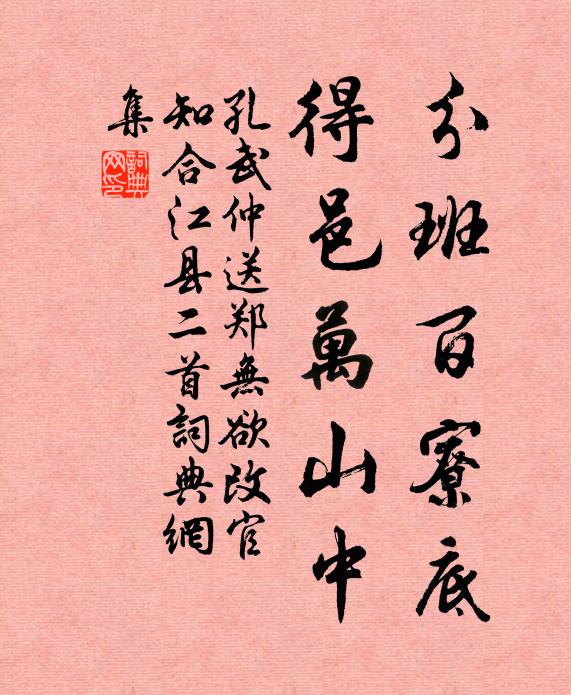 分班百寮底
得邑萬山中
孔武仲送郑無欲改官
知合江县二首詞典網
集
詞典
网印